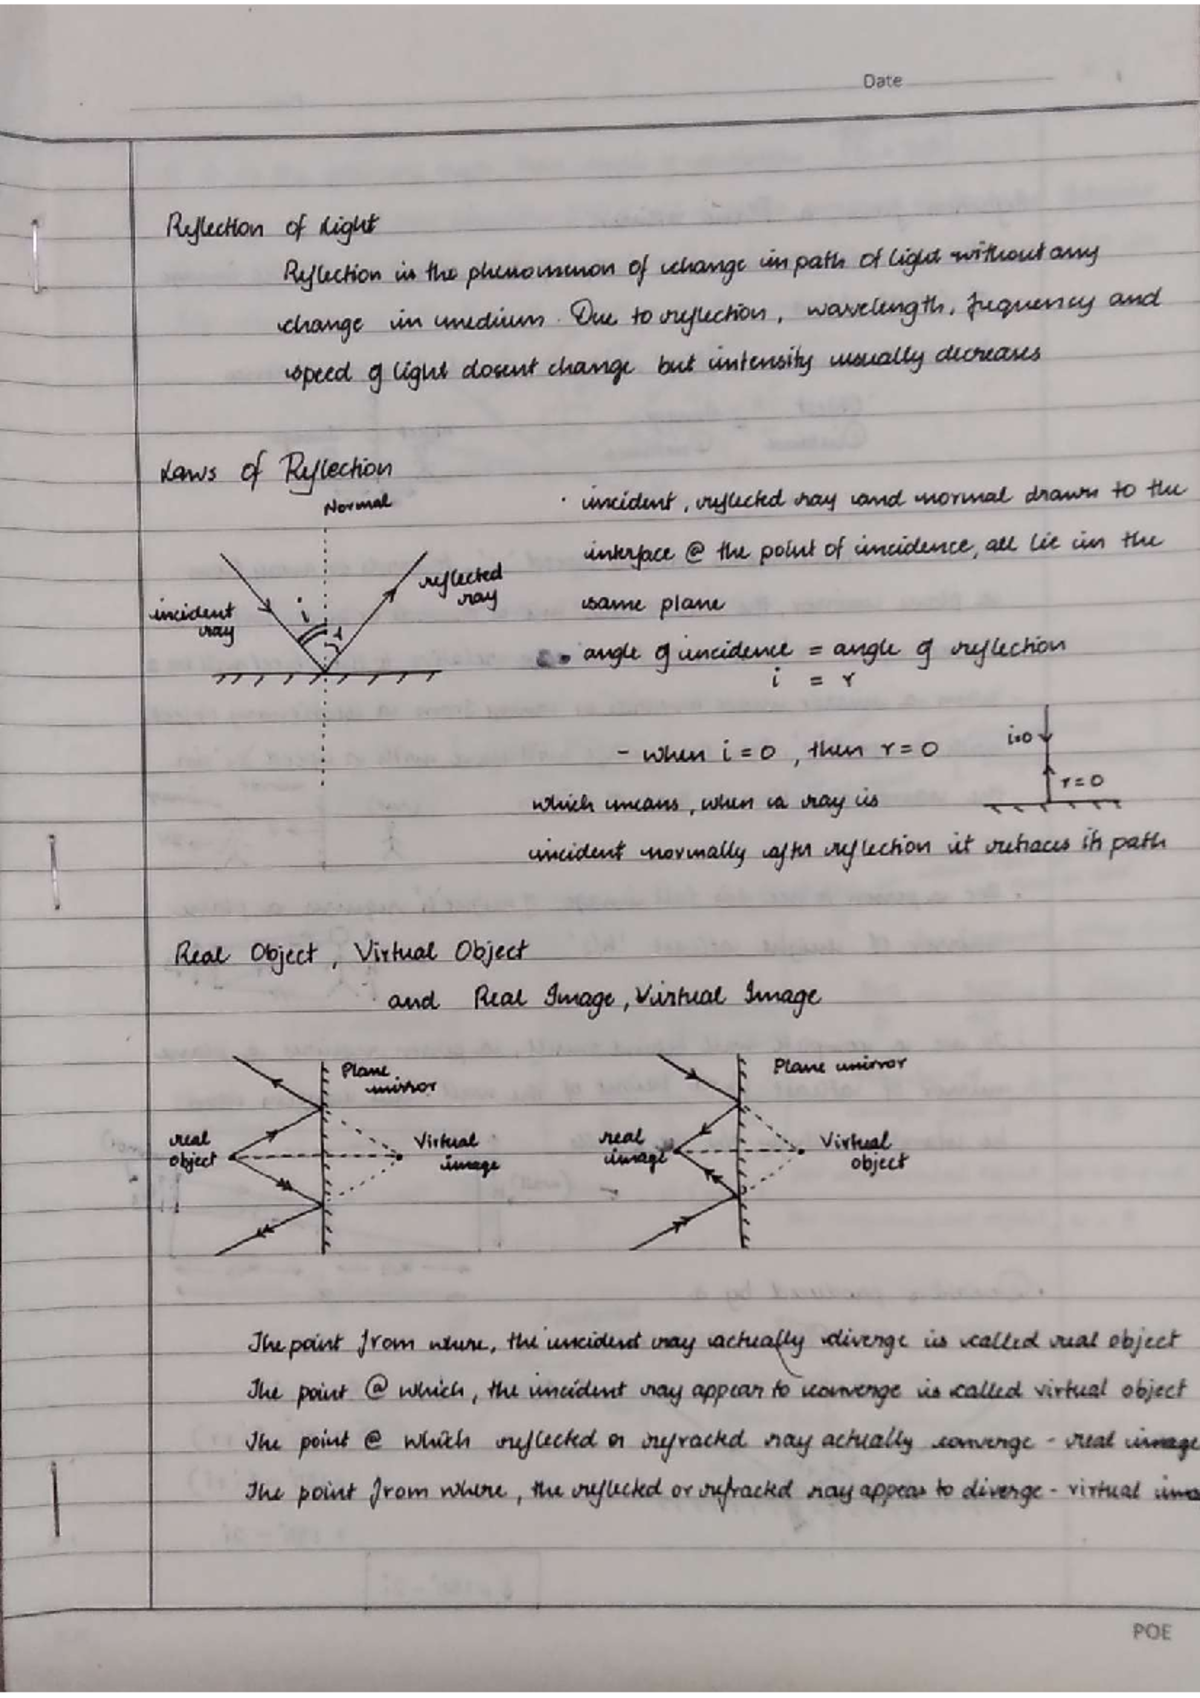 Date
Reflection of Light
Reflection is the phenomenon of change in path of light without any
change in medium. Due to reflection, wavelength, frequency and
speed of light dosent change but intensity usually decreases
Laws of Reflection
Normal
incident ray
reflected ray
i
r
· incident, reflected ray and normal drawn to the
interface @ the point of incidence, all lie in the
same plane
• angle of incidence = angle of reflection
i = r
- when i = 0, then r = 0
i=0
r=0
which means, when a ray is
incident normally after reflection it retraces its path
Real Object, Virtual Object
and Real Image, Virtual Image
Plane mirror
real object
Virtual image
Plane mirror
real image
Virtual object
The point from where, the incident ray actually diverge is called real object
The point @ which, the incident ray appear to converge is called virtual object
The point @ which reflected or refracted ray actually converge - real image
The point from where, the reflected or refracted ray appear to diverge - virtual ima
POE